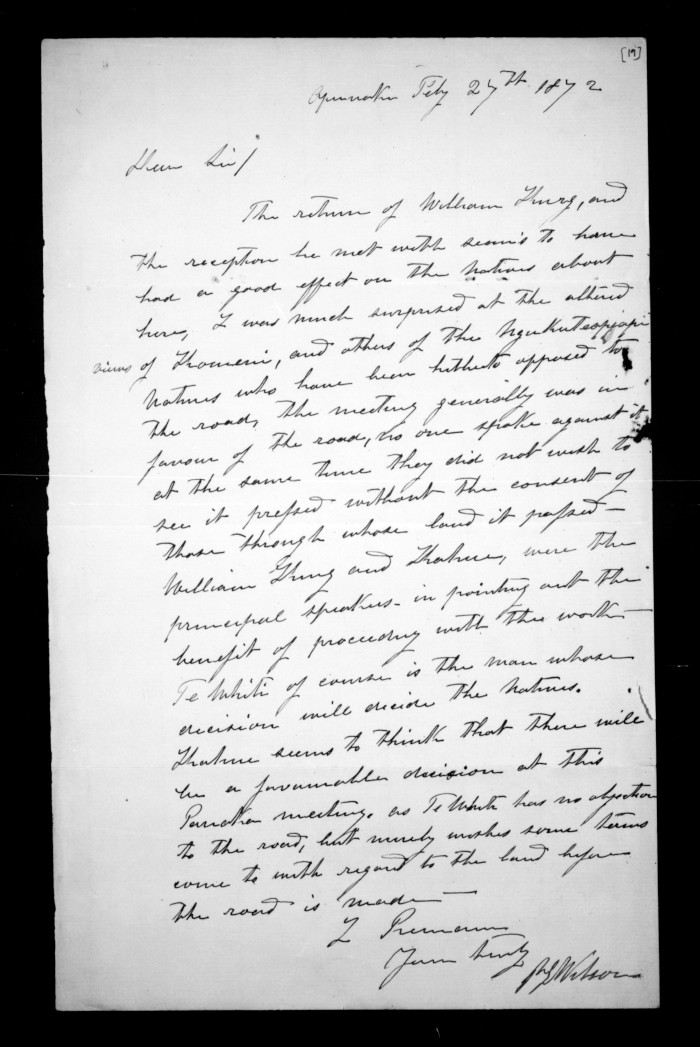 [19]
Opunake Feby 27th 1872
Dear Sir/
The return of William King, and
the reception he met with seems to have
had a good effect on the Natives about
here, I was much surprised at the altered
views of Komeni, and others of the Ngakuteapiapi
Natives who have been hitherto opposed to
the road, the meeting generally was in
favour of the road, no one spoke against it
at the same time they did not wish to
see it pressed without the consent of
those through whose land it passed —
William King and were the
principal speakers - in pointing out the
benefit of proceeding with the work —
Te Whiti of course is the man whose
decision will decide the Natives.
seems to think that there will
be a favourable decision at this
Parihaka meeting. as Te Whiti has no objection
to the road, but merely wishes some terms
come to with regard to the land before
the road is made —
I Remain
Yours truly
Wilson